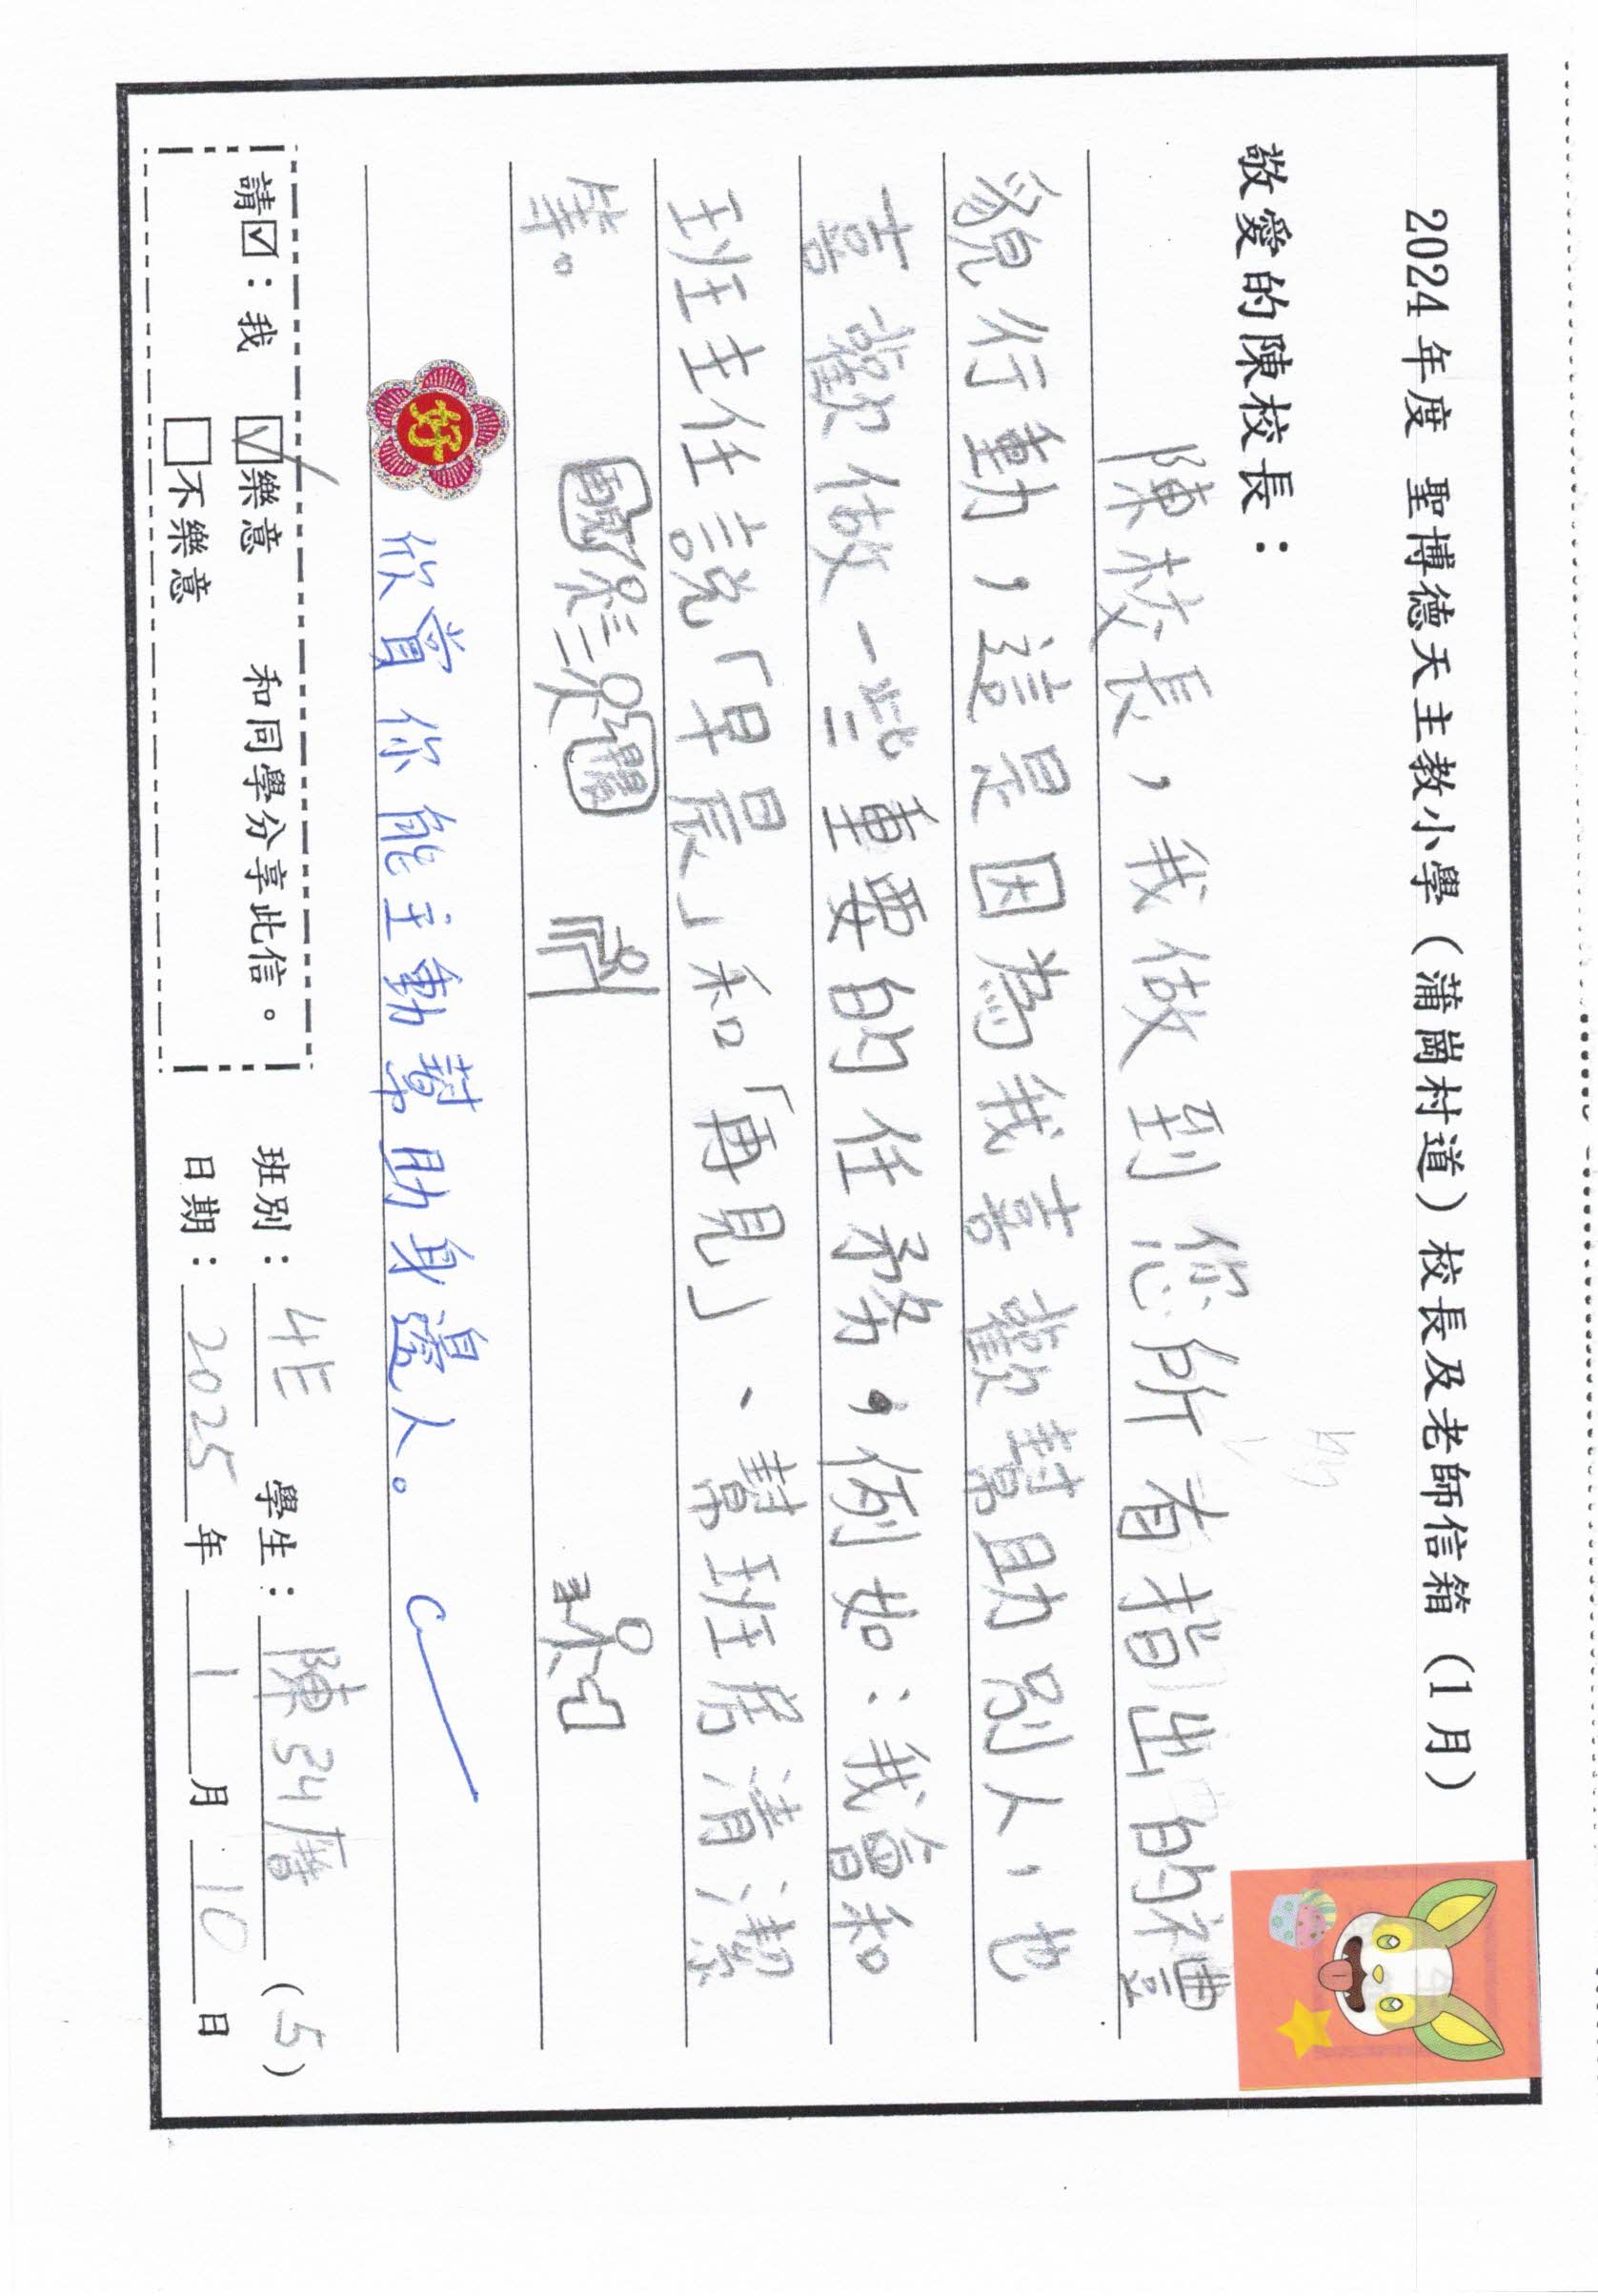 2024 年度 聖博德天主教小學（蒲崗村道）校長及老師信箱（1 月）
敬愛的陳校長：
陳校長，我做到您所有指出的禮
貌行動，這是因為我喜歡幫助別人，也
喜歡做一些重要的任務，例如：我會和
班主任說「早晨」和「再見」、幫班房清潔
等。
好
欣賞你能主動幫助身邊人。
請☑：我 ☑樂意 和同學分享此信。
□不樂意
班別：4E 學生：陳 (5)
日期：2025年1月10日